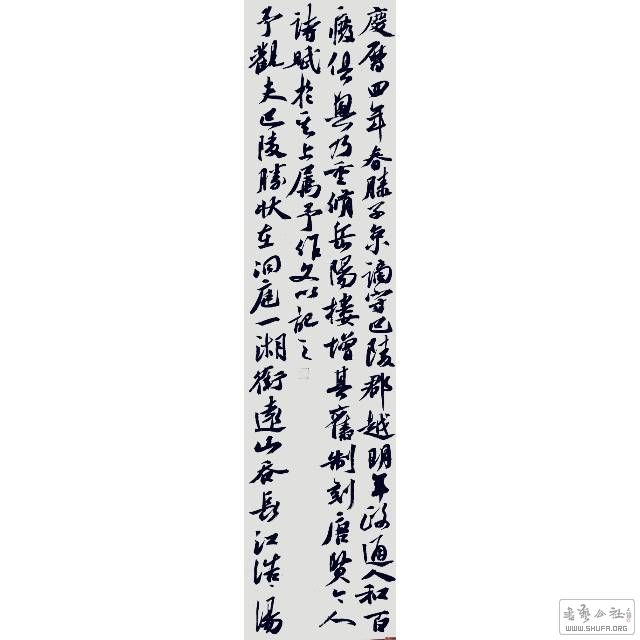 慶曆四年春滕子京謫守巴陵郡越明年政通人和百
廢俱興乃重脩岳陽樓增其舊制刻唐賢今人
詩賦於其上属予作文以記之
予觀夫巴陵勝狀在洞庭一湖銜遠山吞長江浩〻湯
書藝公社
WWW.SHUFA.ORG